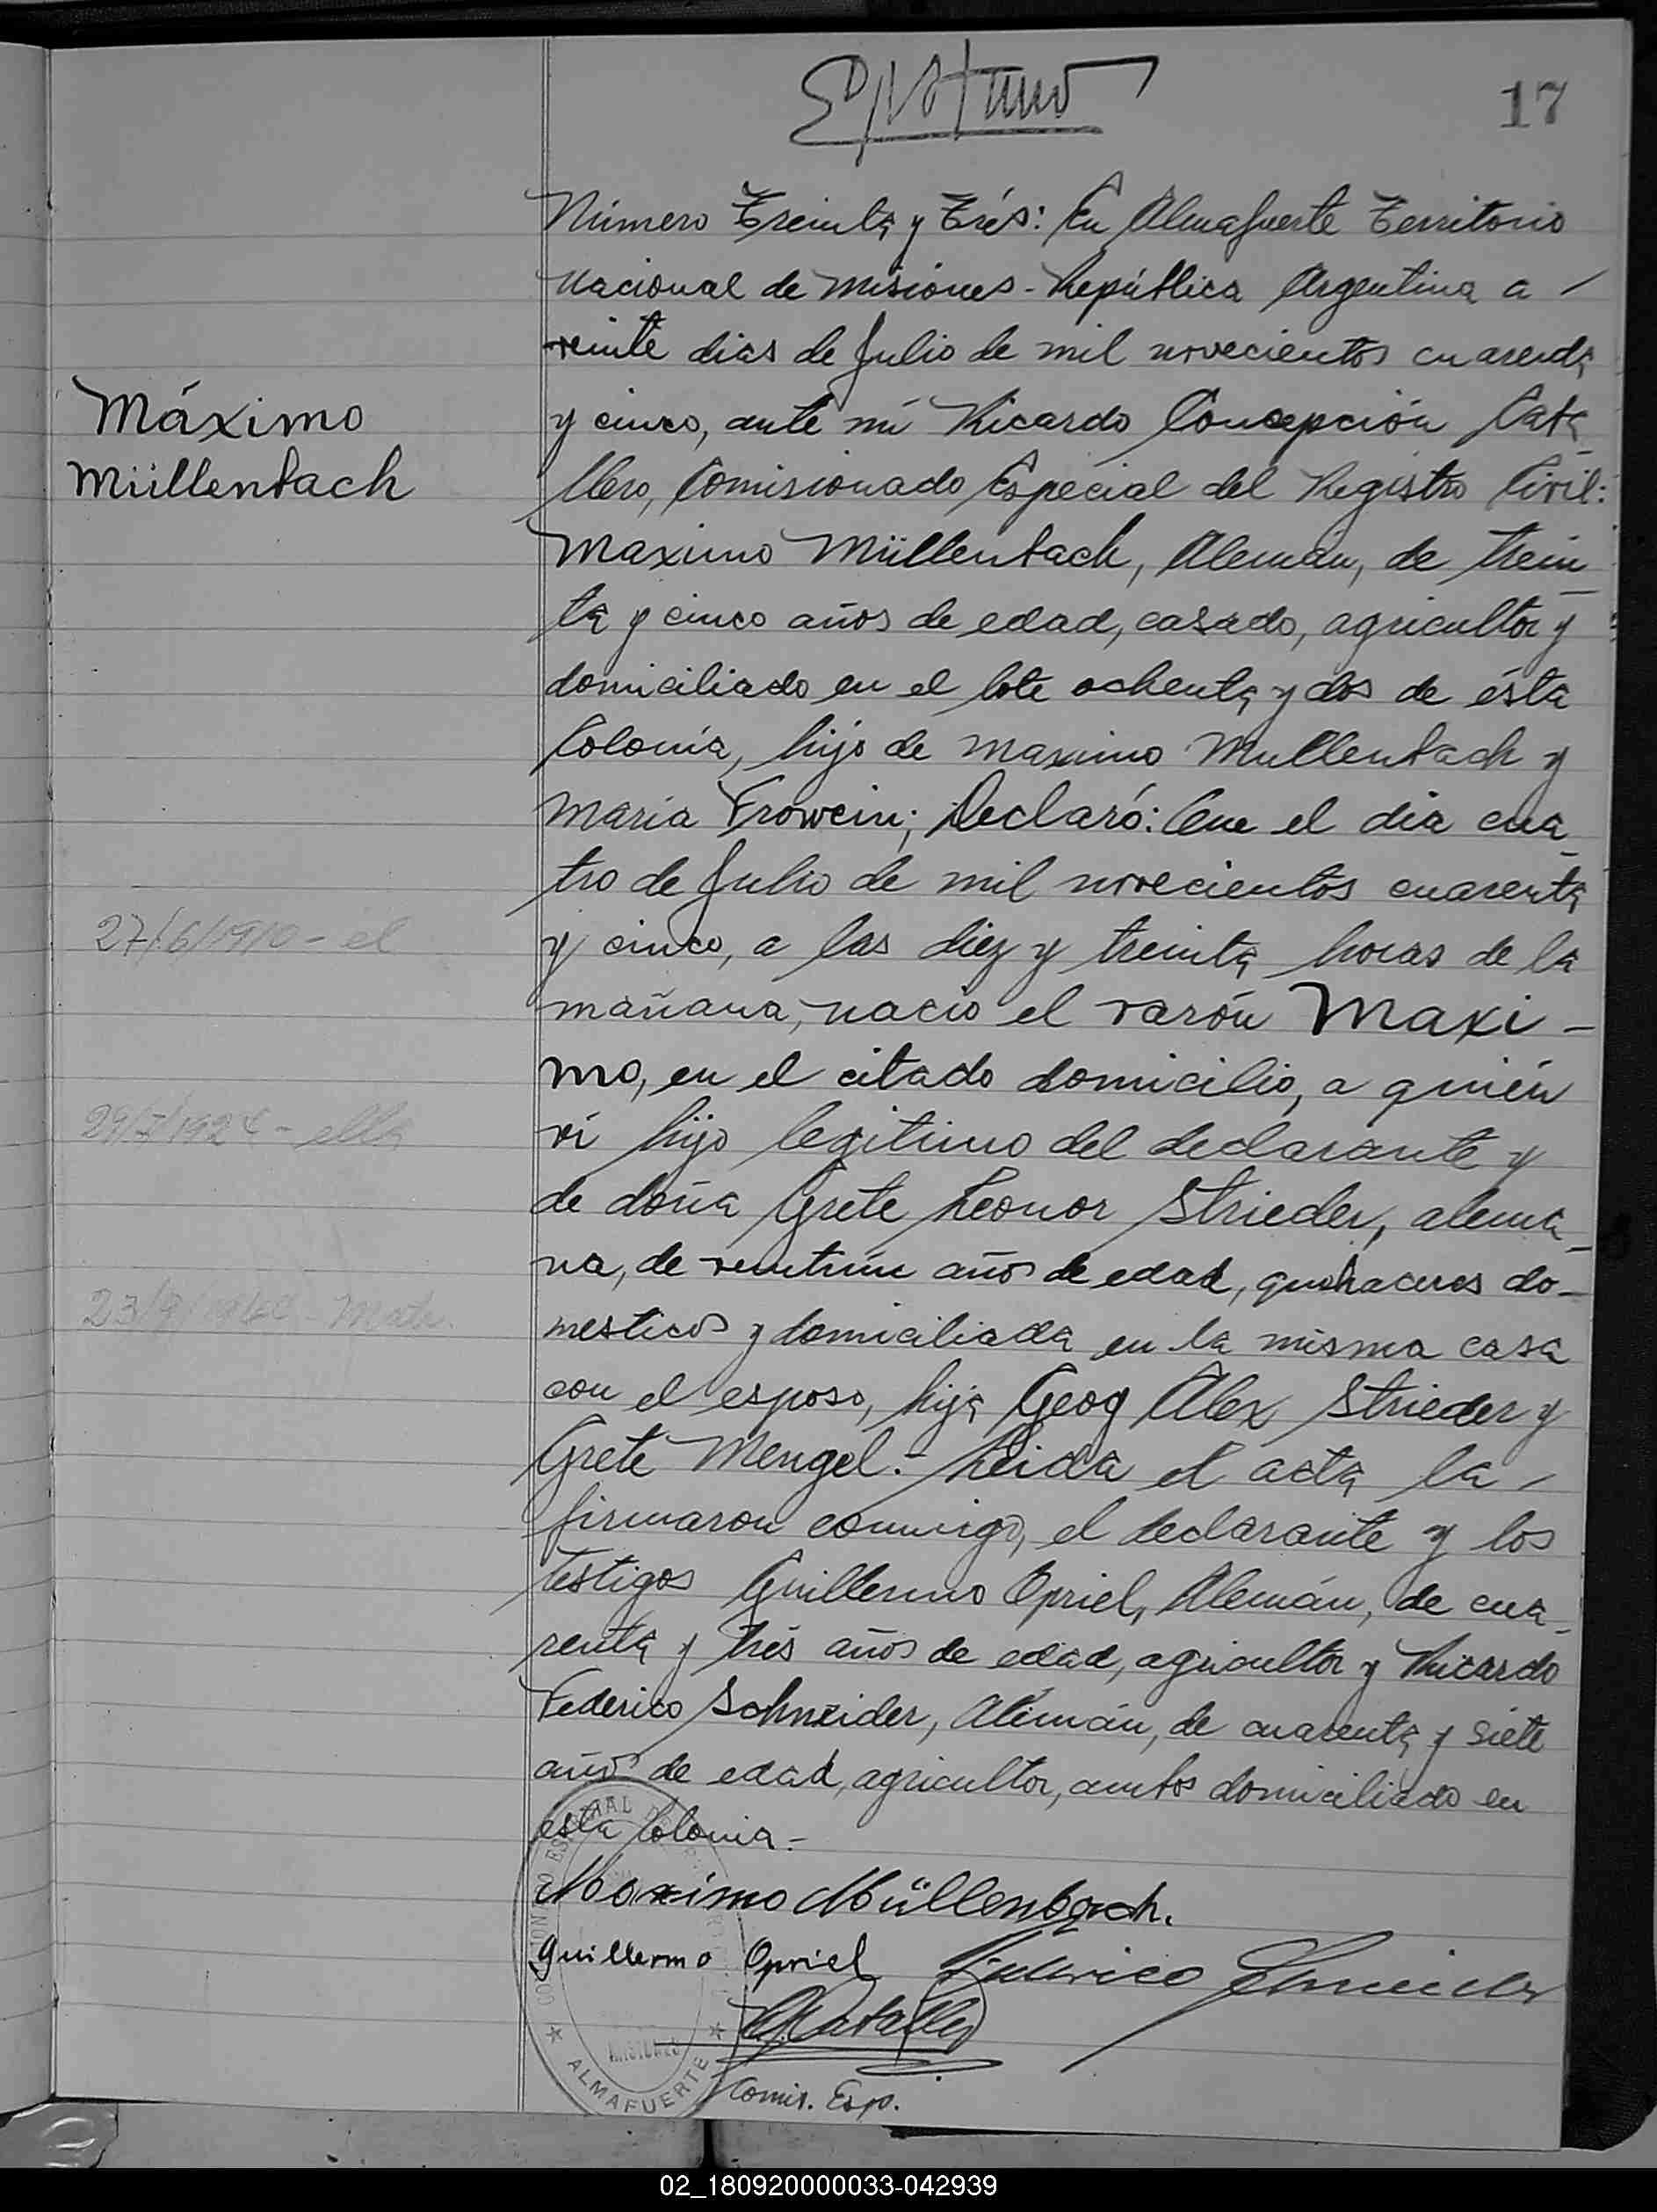 17
Número Treinta y Trés: En Almafuerte Territorio
Nacional de Misiones - República Argentina a
veinte dias de Julio de mil novecientos cuarenta
y cinco, ante mí Ricardo Concepción Cata_
Máximo
Müllenbach
llero, Comisionado Especial del Registro Civil:
Maximo Müllenbach, Alemán, de trein_
ta y cinco años de edad, casado, agricultor y
domiciliado en el lote ochenta y dos de ésta
Colonia, hijo de Maximo Mullenbach y
Maria Frowein; Declaró: Que el dia cua_
tro de Julio de mil novecientos cuarenta
27/6/1910 - el
y cinco, a las diez y treinta horas de la
mañana, nacio el varón Maxi-
mo, en el citado domicilio, a quién
29/7/192 - ella
ví hijo legitimo del declarante y
de doña Grete Leonor Strieder, alema_
na, de veintiun años de edad, quehaceres do-
23/9/ - Matr.
mesticos y domiciliada en la misma casa
con el esposo, hija Geog Alex Strieder y
Grete Mengel.- Leida el acta la
firmaron conmigo, el declarante y los
testigos Guillermo Opriel, Alemán, de cua_
renta y trés años de edad, agricultor y Ricardo
Federico Schneider, Alemán, de cuarenta y siete
años de edad, agricultor, ambos domiciliado en
esta Colonia.-
Maximo Müllenbach.
Guillermo Opriel Federico Schneider
Comis. Esp.
MISIONES
★ ALMAFUERTE ★
02_180920000033-042939